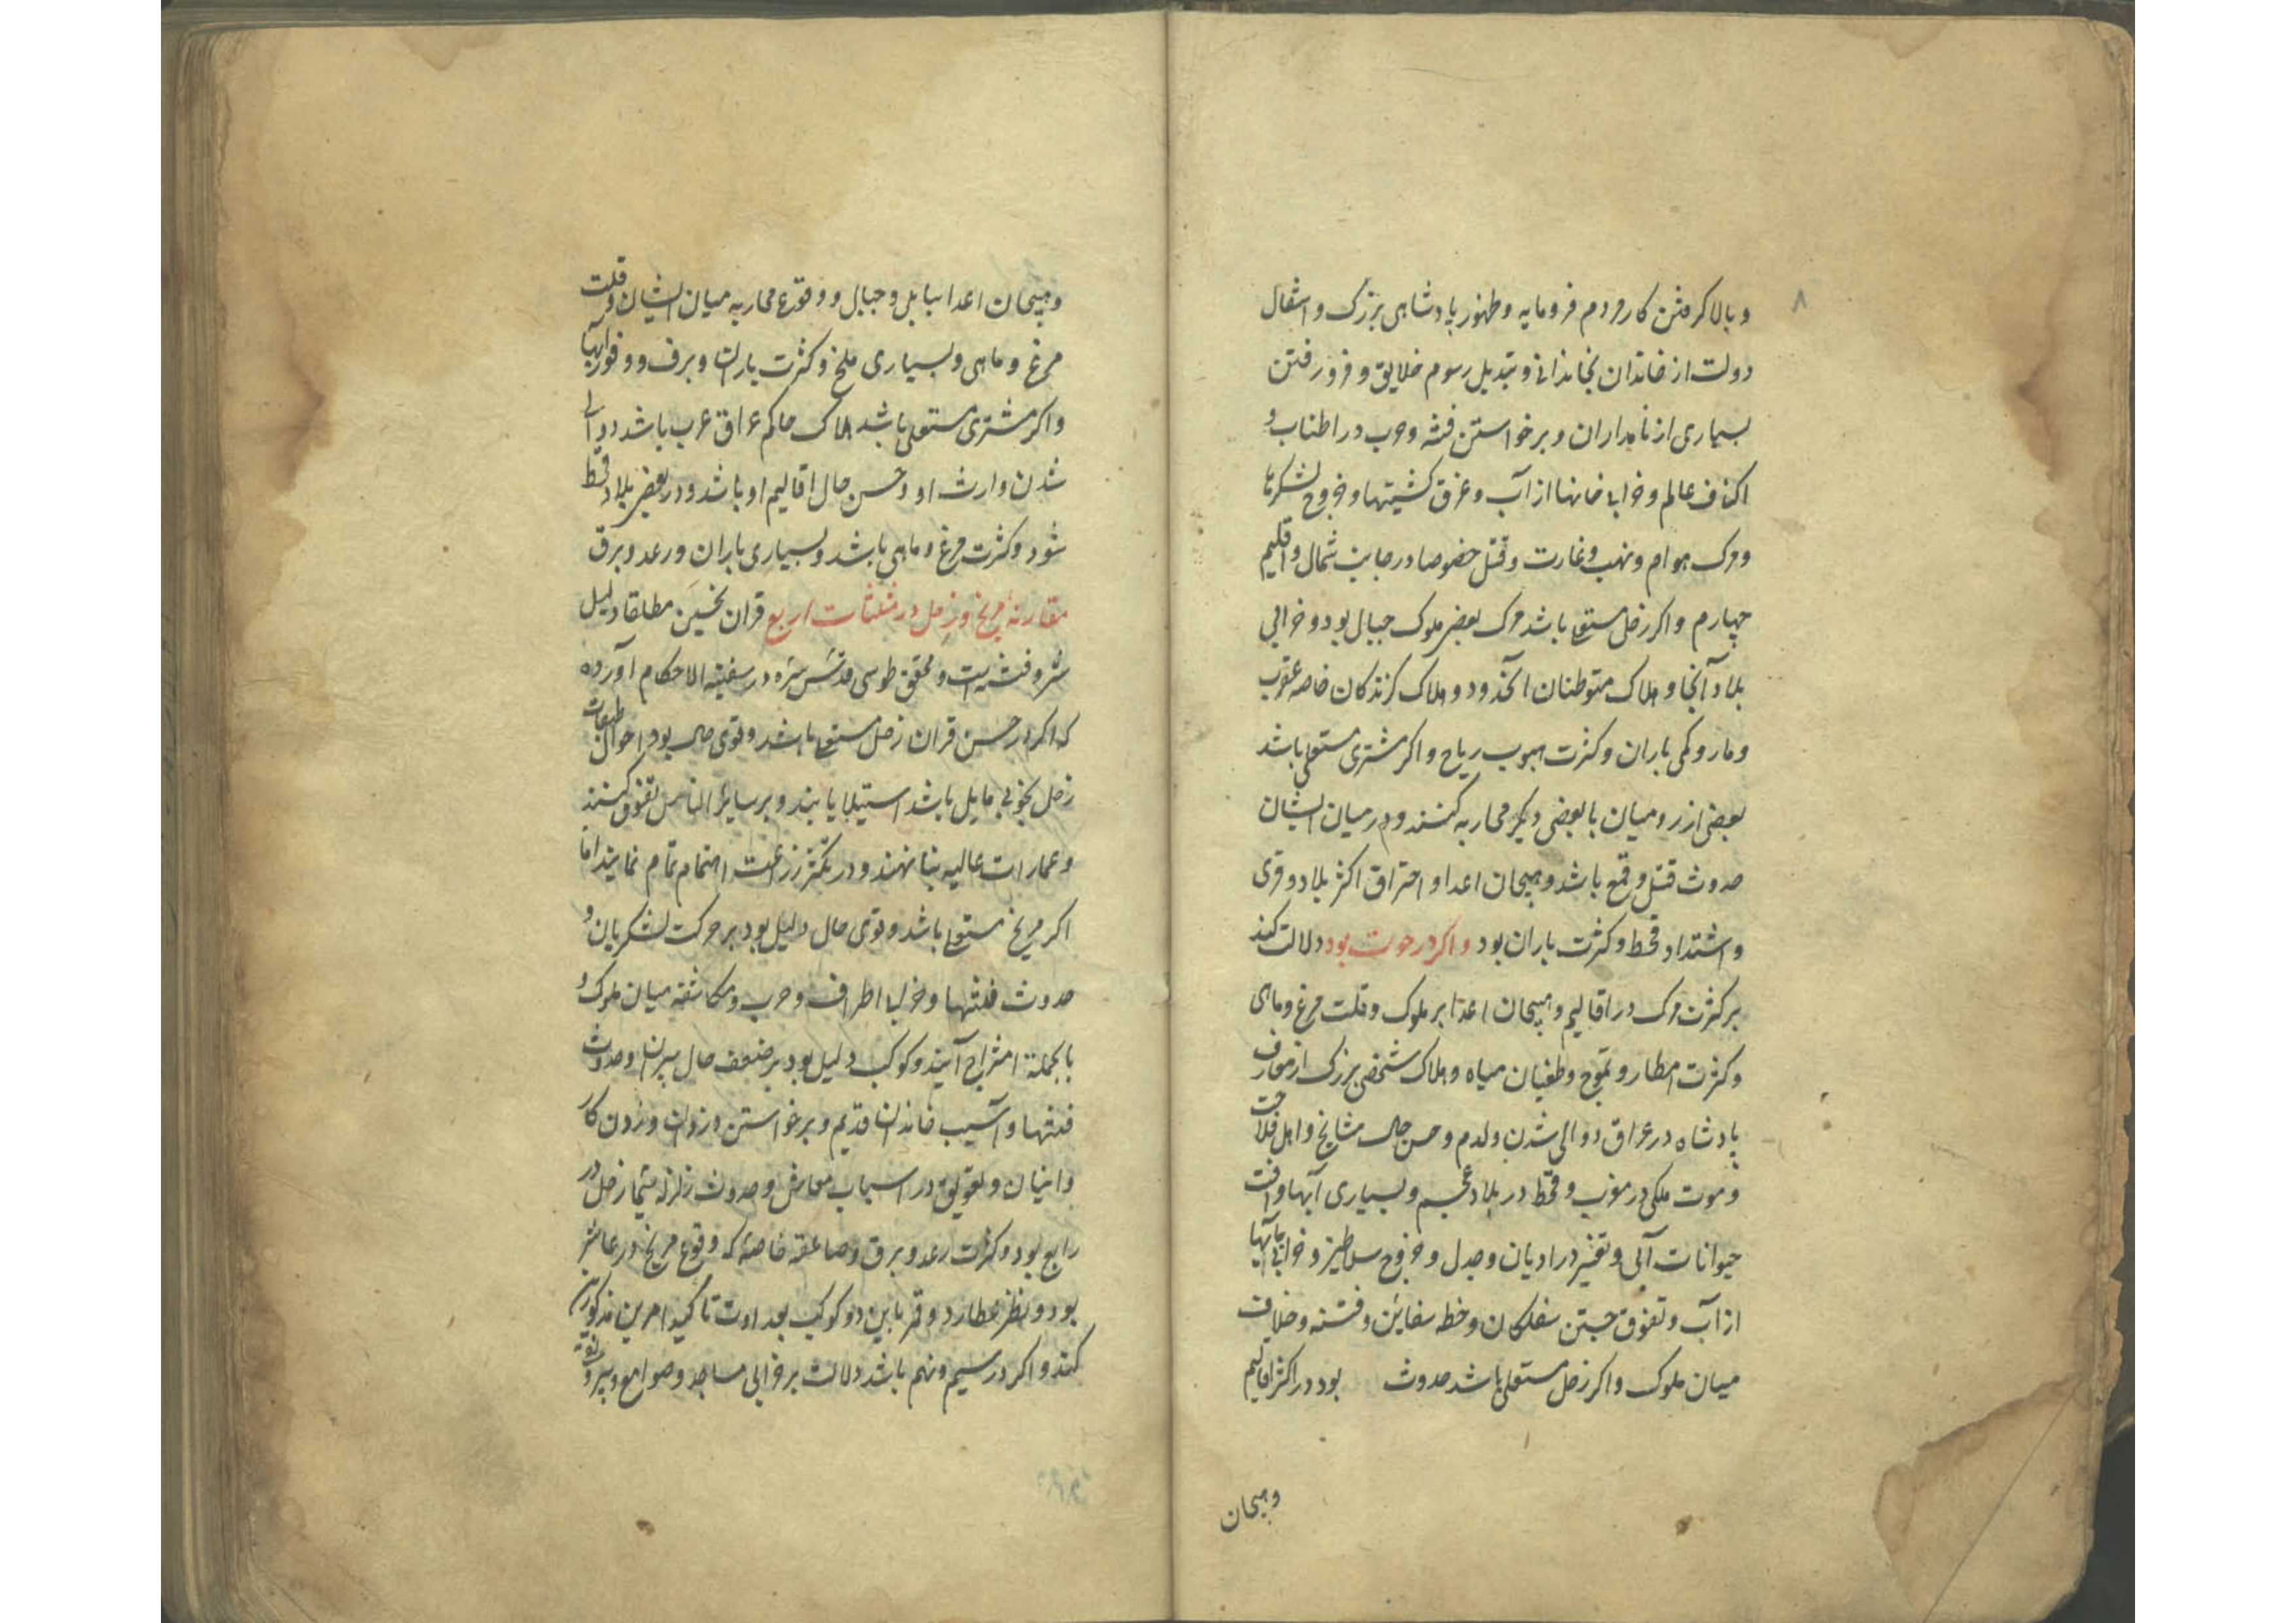 ۸
و بالا کرفتن کار مردم فرومایه و ظهور پادشاهی بزرک و انتقال
دولت از خاندان بخاندانی و تبدیل رسوم خلایق و فرو رفتن
بسیاری از نامداران و برخواستن فتنه و حرب در اطناب و
اکناف عالم و خرابی خانها از آب و غرق کشتیها و خروج لشکرها
و مرک هوام و نهب و غارت و قتل خصوصا در جانب شمال و اقلیم
چهارم و اکر زحل مستعلی باشد مرک بعضی ملوک جبال بود و خرابی
بلاد آنجا و هلاک متوطنان آنحدود و هلاک کزندکان خاصه عقرب
و مار و کمی باران و کثرت هبوب ریاح و اکر مشتری مستعلی باشد
بعضی از رومیان با بعضی دیکر محاربه کنند و در میان ایشان
حدوث قتل و قمع باشد و هیجان اعدا و احتراق اکثر بلاد و قری
و اشتداد قحط و کثرت باران بود و اکر در حوت بود دلالت کند
بر کثرت مرک در اقالیم و هیجان اعدا بر ملوک و قلت مرغ و ماهی
و کثرت امطار و تموج و طغیان میاه و هلاک شخصی بزرک از معارف
پادشاه در عراق و والی شدن ولدم و حسن حال مشایخ و اهل فلاحت
و موت ملکی در مغرب و قحط در بلاد عجم و بسیاری آبها و آفت
حیوانات آبی و تغییر در ادیان و جدل و خروج سلاطین و خرابی
از آب و تفوق جستن سفلکان و خطه سفاین و فتنه و خلافت
میان ملوک و اکر زحل مستعلی باشد حدوث بود در اکثر اقالیم
و هیجان
و هیجان اعدا ببابل و جبال و وقوع محاربه میان ایشان و قلت
مرغ و ماهی و بسیاری ملخ و کثرت باران و برف و وفور آبها
و اکر مشتری مستعلی باشد هلاک حاکم عراق عرب باشد و والی
شدن وارث او و حسن حال اقالیم او باشد و در بعضی بلاد قحط
شود و کثرت مرغ و ماهی باشد و بسیاری باران و رعد و برق
مقارنه مریخ و زحل در مثلثات اربع قران نحسین مطلقا دلیل
شر و فتنه است و محقق طوسی قدس سره در سفینه الاحکام آورده
که اکر در حین قران زحل مستعلی باشد و قوی حال بود احوال طبقات
زحل بخوبی مایل باشد استیلا یابند و بر سایر الناس تفوق کنند
و عمارات عالیه بنا نهند و در تکثر زراعت اهتمام تمام نمایند اما
اکر مریخ مستعلی باشد و قوی حال دلیل بود بر حرکت لشکریان و
حدوث فتنها و خرابی اطراف و حرب و مکاشفه میان ملوک و
بالجمله امتزاج آیندو کوکب دلیل بود بر ضعف حال پیران و حدوث
فتنها و آسیب خاندان قدیم و برخواستن دزدان و زدن کار
وانیان و تعویق در اسباب معاش و حدوث زلزله سیما زحل در
رابع بود و کثرت رعد و برق و صاعقه خاصه که وقوع مریخ در عاشر
بود و نظر عطارد و قمر باین دو کوکب بعداوت تاکید امرین مذکورین
کند و اکر در سیم و نهم باشد دلالت بر خرابی مساجد و صوامع